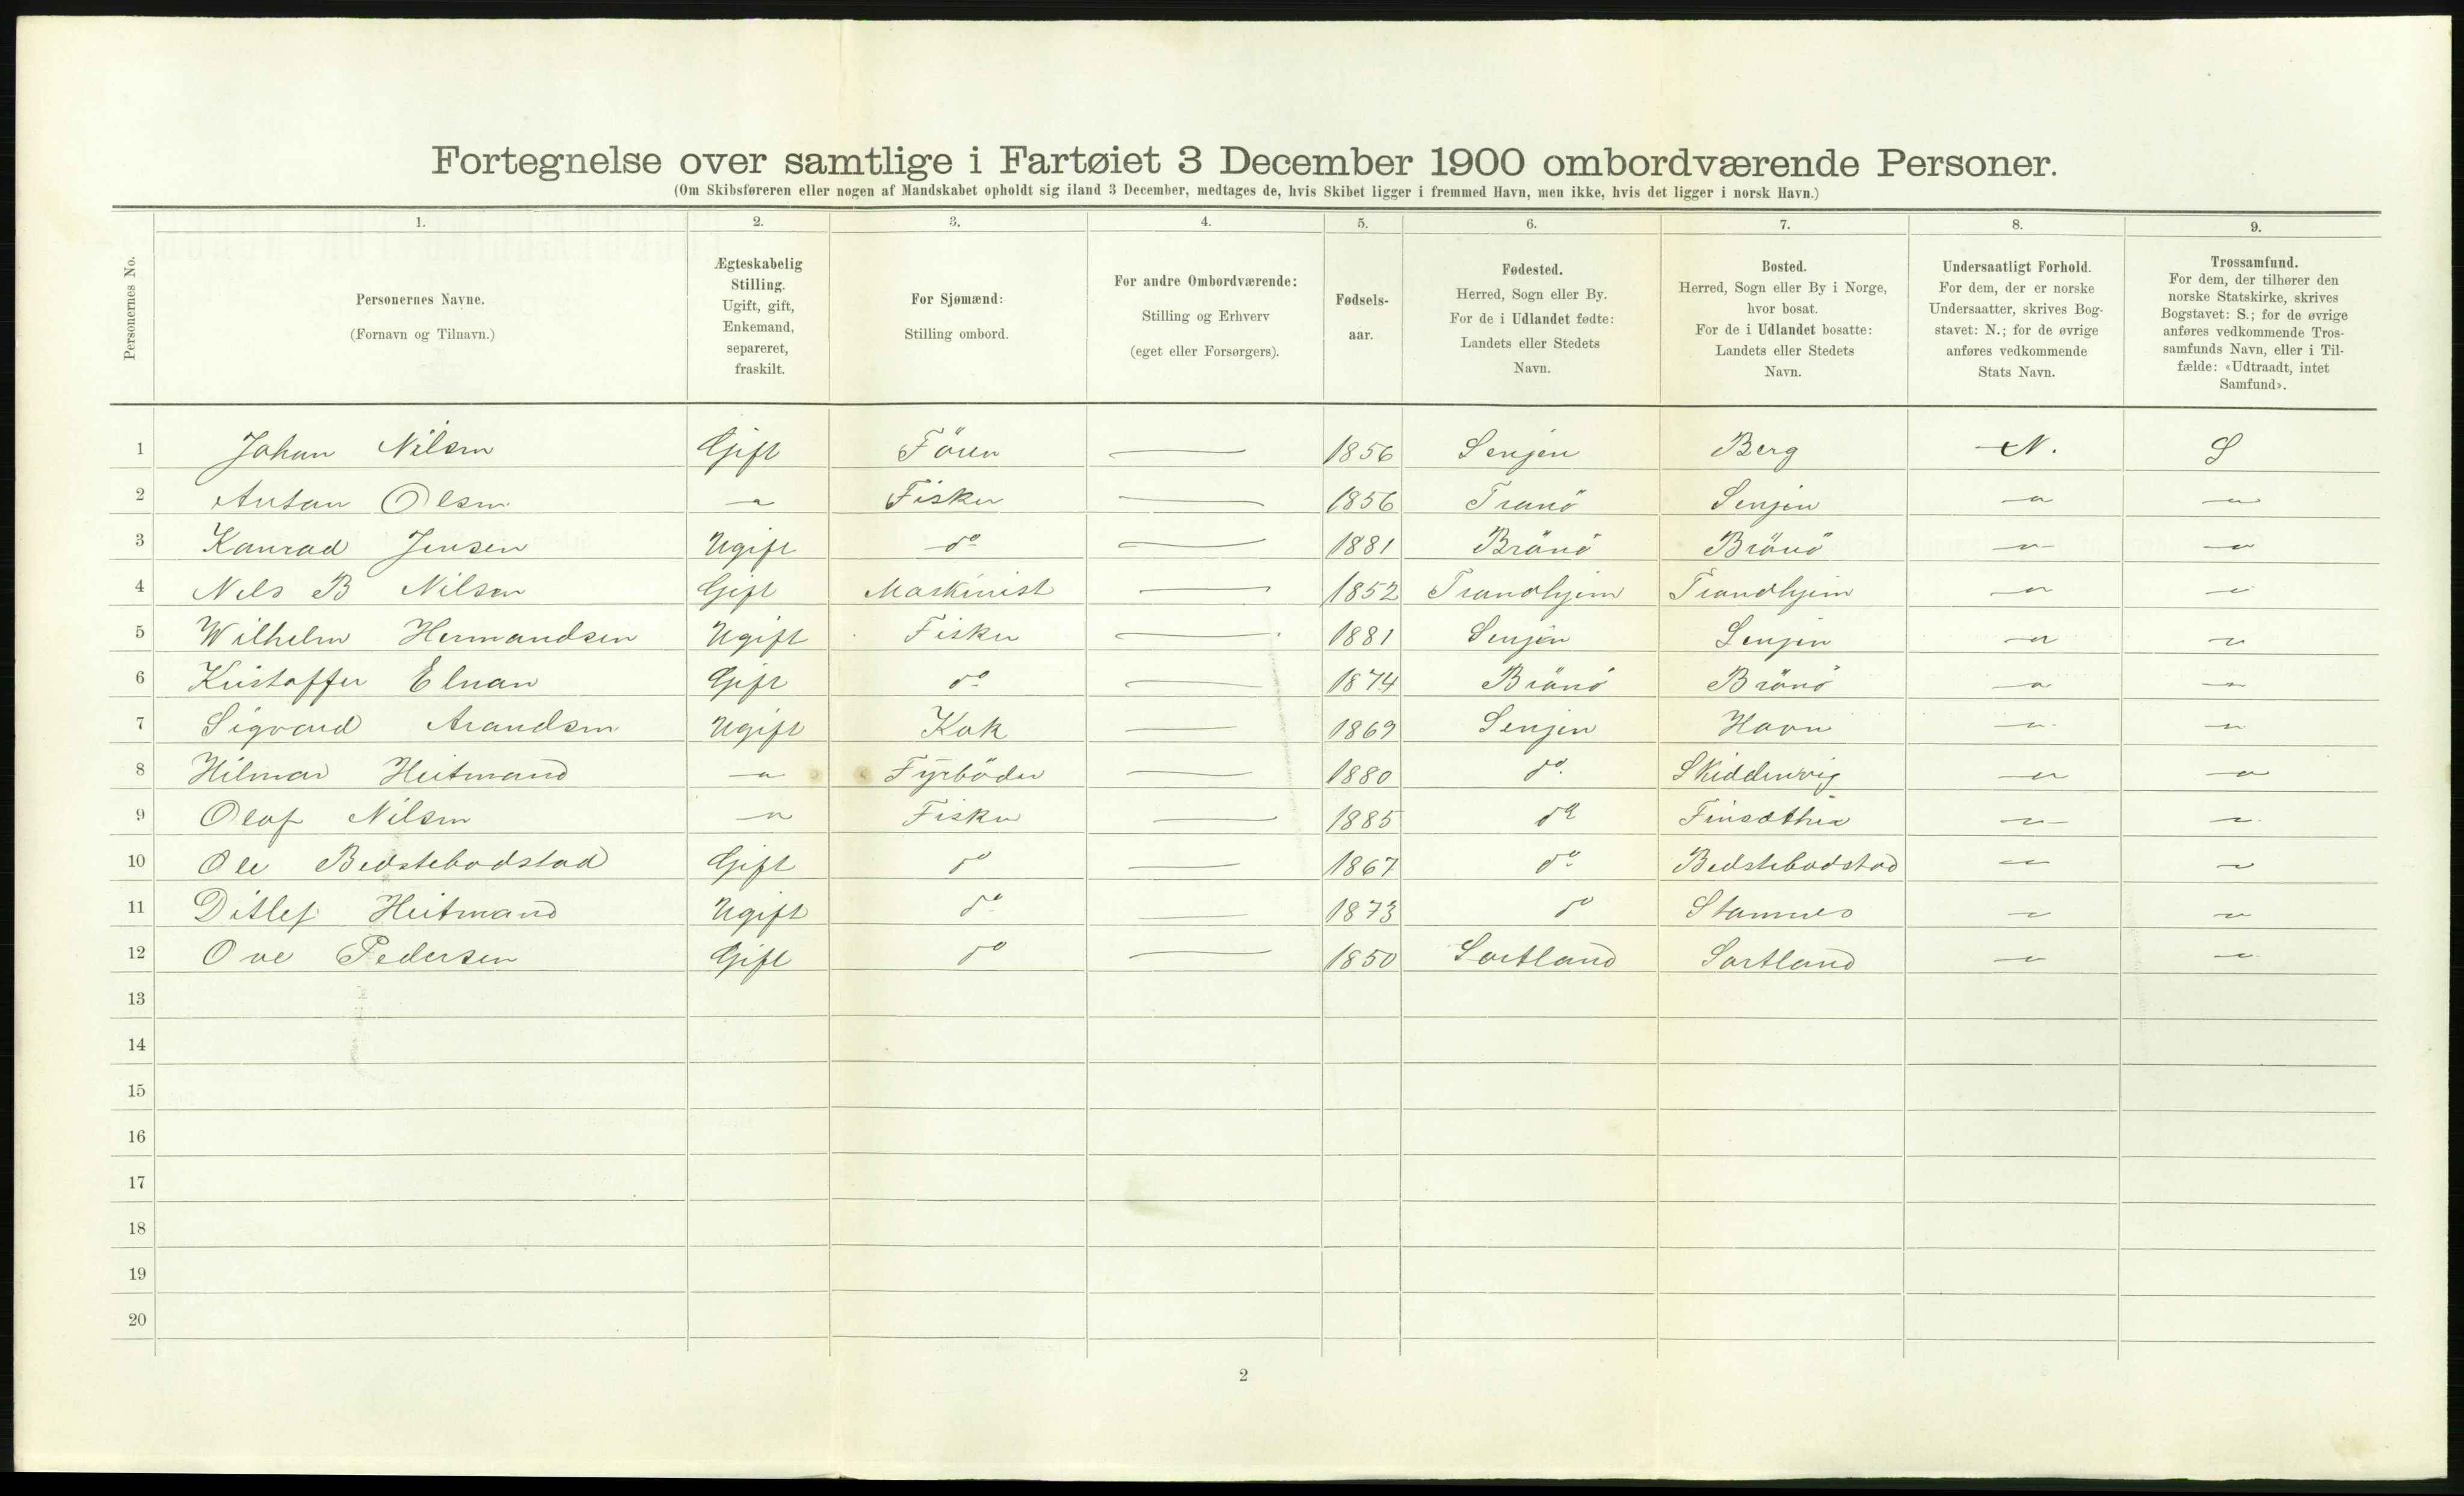 Fortegnelse over samtlige i Fartøiet 3 December 1900 ombordværende Personer.
(Om Skibsføreren eller nogen af Mandskabet opholdt sig iland 3 December, medtages de, hvis Skibet ligger i fremmed Havn, men ikke, hvis det ligger i norsk Havn.)
Personernes No.
1. 2. 3. 4. 5. 6. 7. 8. 9.
Personernes Navne.
(Fornavn og Tilnavn.)
Ægteskabelig
Stilling.
Ugift, gift,
Enkemand,
separeret,
fraskilt.
For Sjømænd:
Stilling ombord.
For andre Ombordværende:
Stilling og Erhverv
(eget eller Forsørgers).
Fødsels-
aar.
Fødested.
Herred, Sogn eller By.
For de i Udlandet fødte:
Landets eller Stedets
Navn.
Bosted.
Herred, Sogn eller By i Norge,
hvor bosat.
For de i Udlandet bosatte:
Landets eller Stedets
Navn.
Undersaatligt Forhold.
For dem, der er norske
Undersaatter, skrives Bog-
stavet: N.; for de øvrige
anføres vedkommende
Stats Navn.
Trossamfund.
For dem, der tilhører den
norske Statskirke, skrives
Bogstavet: S.; for de øvrige
anføres vedkommende Tros-
samfunds Navn, eller i Til-
fælde: «Udtraadt, intet
Samfund».
1 Johan Nilsen Gift Fören — 1856 Senjen Berg N. S
2 Antan Olsen — " — Fisker — 1856 Tranö Senjen — " — — " —
3 Konrad Jensen Ugift do — 1881 Brönö Brönö — " — — " —
4 Nels B Nilsen Gift Maskinist — 1852 Trondhjem Trondhjem — " — — " —
5 Wilhelm Hermandsen Ugift Fisker — 1881 Senjen Senjen — " — — " —
6 Kristoffer Elnan Gift do — 1874 Brönö Brönö — " — — " —
7 Sigvard Arandsen Ugift Kok — 1869 Senjen Havn — " — — " —
8 Hilmar Heitmand — " — Fyrböder — 1880 do. — " — — " —
9 Olaf Nilsen — " — Fisker — 1885 do — " — — " —
10 Ole Bedstebodstad Gift do — 1867 do Bedstebodstad — " — — " —
11 Ditlef Heitmand Ugift do — 1873 do Stannes — " — — " —
12 Ove Pedersen Gift do — 1850 Sortland Sortland — " — — " —
13
14
15
16
17
18
19
20
2